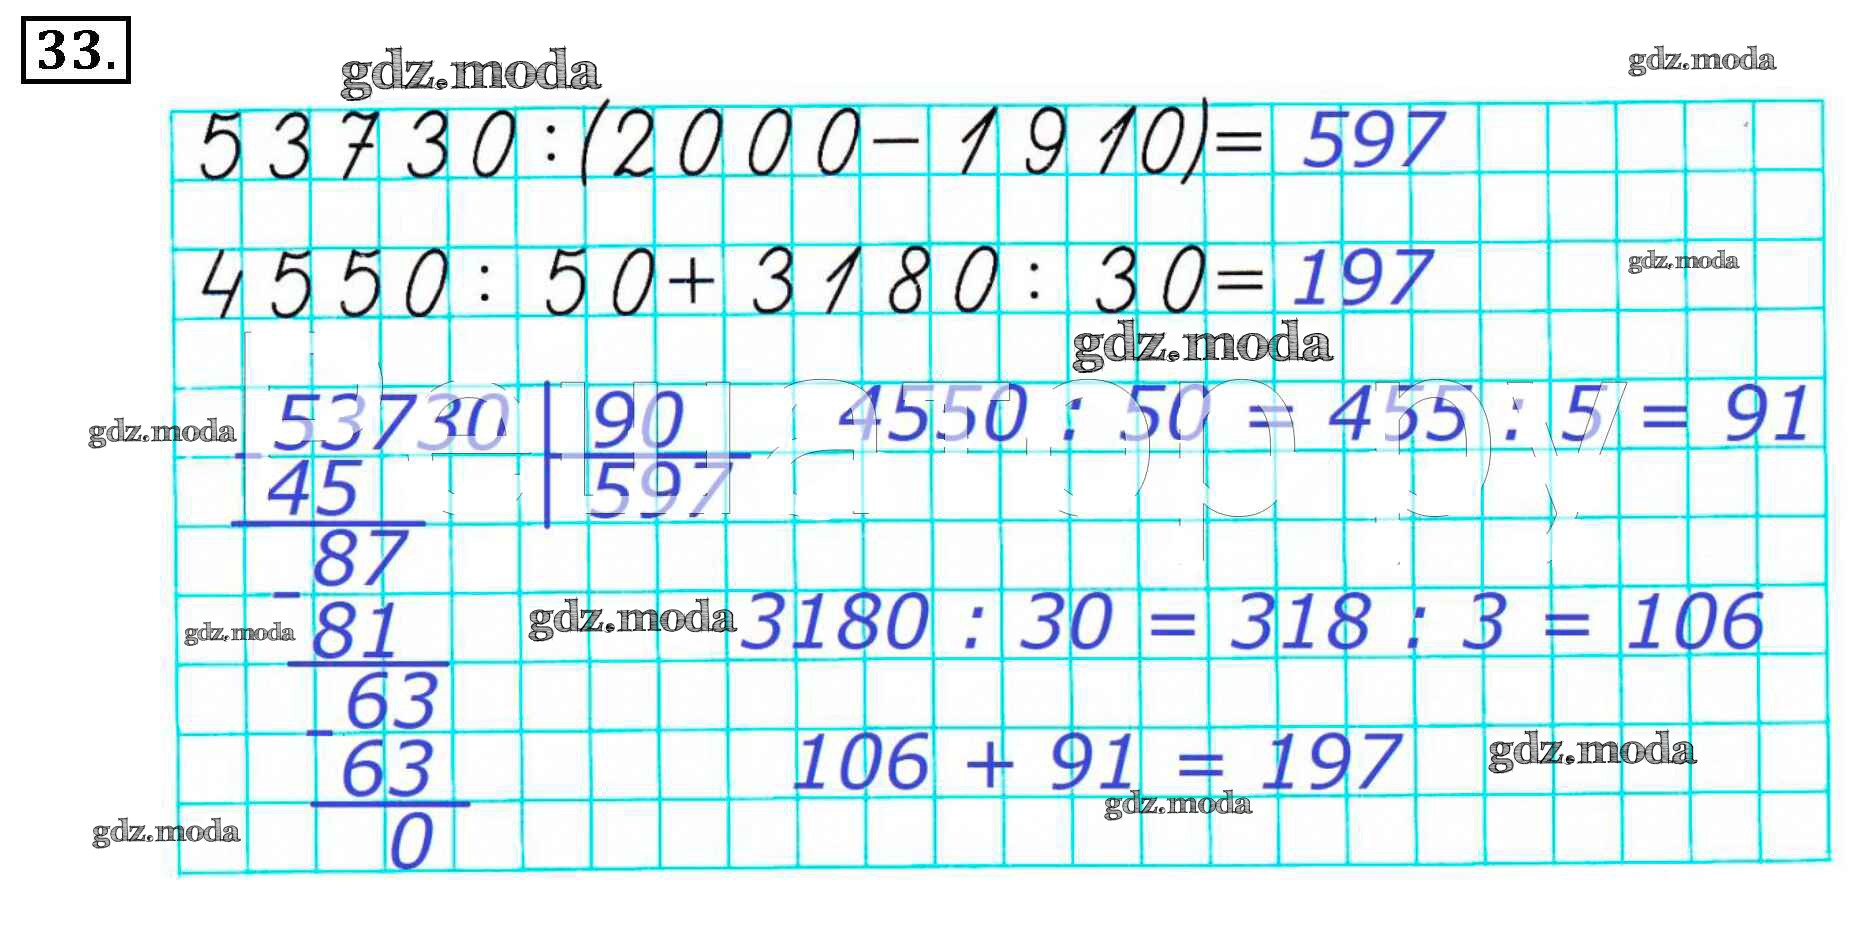 33.
gdz.moda
gdz.moda
53730:(2000-1910)= 597
4550: 50+3180: 30=197
gdz.moda
gdz.moda
gdz.moda
53730 90
4550 : 50 = 455 : 5 = 91
- 45 597
87
- 81
gdz.moda
gdz.moda
3180 : 30 = 318 : 3 = 106
63
- 63
106 + 91 = 197
gdz.moda
gdz.moda
gdz.moda
0